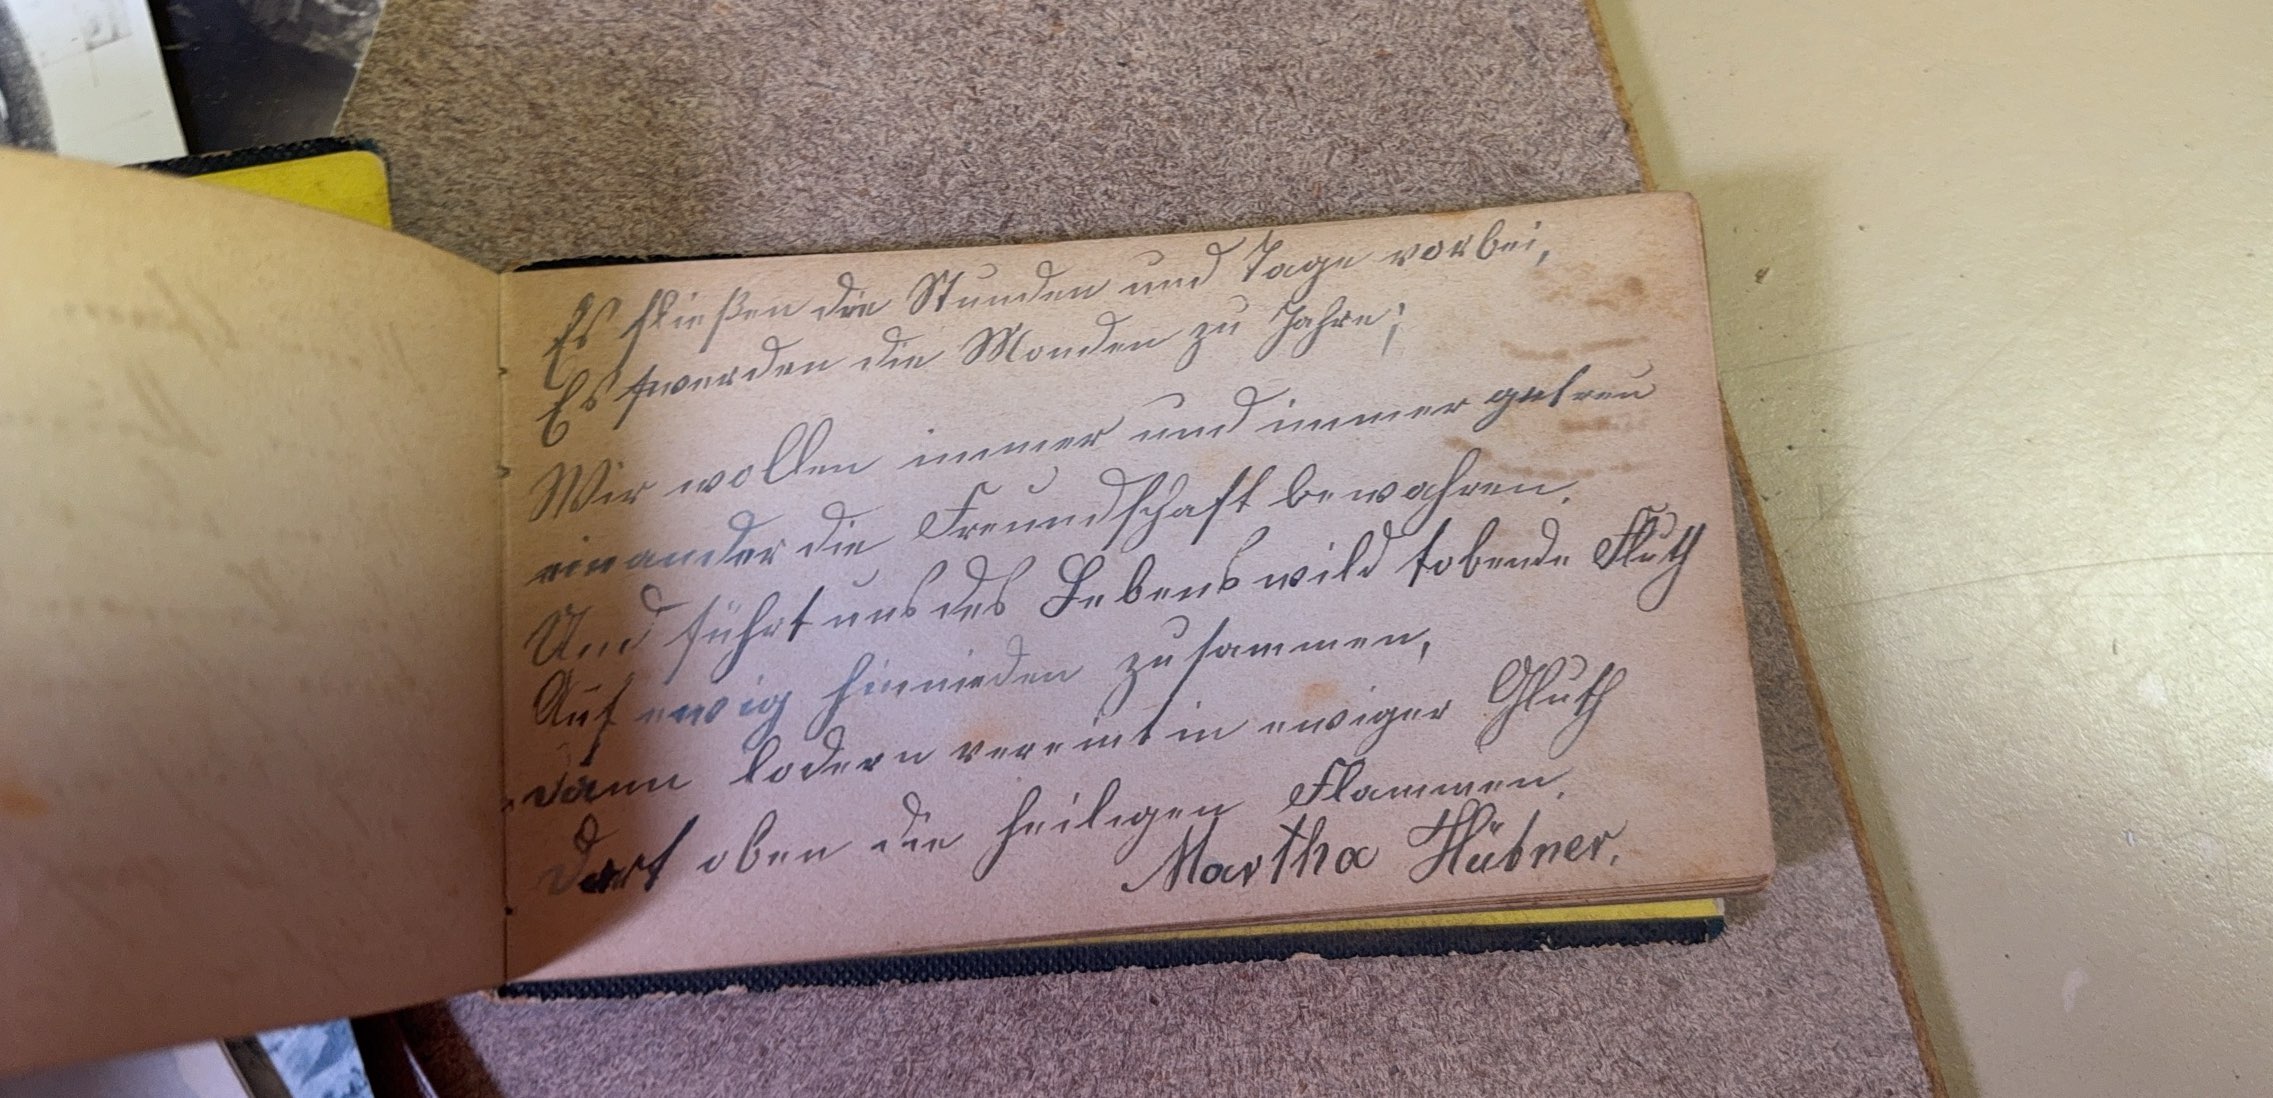 Es fließen die Stunden und Tage vorbei,
Es werden die Monden zu Jahre;
Wir wollen immer und immer getreu
einander die Freundschaft bewahren.
Und führt uns des Lebens wild tobende Fluth
Auf ewig hienieden zusammen,
dann lodern vereint in ewiger Gluth
Dort oben die heiligen Flammen.
Martha Hübner.